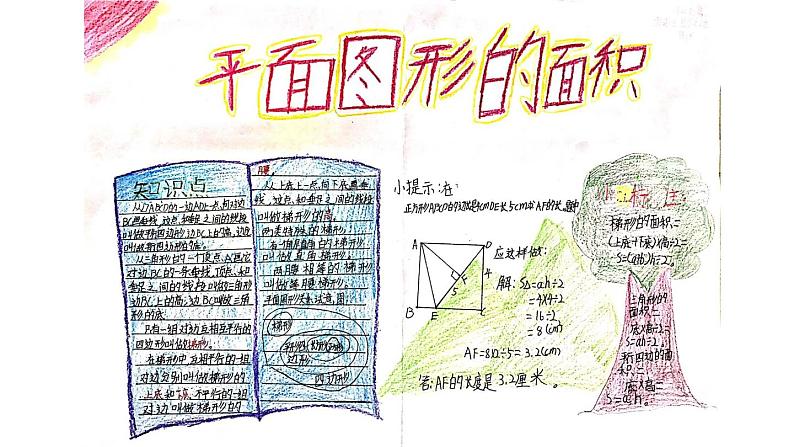 平面图形的面积
知识点
从▱ABCD的一边AD上一点向对边
BC画垂线,这点和垂足之间的线段
叫做平行四边形ABCD的高,边BC
叫做平行四边形的底。
从三角形的一个顶点A向它
对边BC的一条垂线,顶点和
垂足之间的线段叫做三角形
边BC上的高,边BC叫做三角
形的底
只有一组对边互相平行的
四边形叫做梯形。
在梯形中互相平行的一组
对边分别叫做梯形的
上底和下底,不平行的一组
对边叫做梯形的
腰
从上底上一点向下底画垂
线,这点和垂足之间的线段
叫做梯形的高。
两类特殊的梯形
有一个角是直角的梯形
叫做直角梯形。
两腰相等的梯形
叫做等腰梯形。
平面图形关系示意图:
梯形
四边形
小提示:在
正方形ABCD的边长是4cm DE长5cm求AF的长。
A
D
B
E
C
F
5
4
应这样做:
解:S△=ah÷2
=4×4÷2
=16÷2
=8(cm)
AF=8×2÷5=3.2(cm)
答:AF的长度是3.2厘米。
小标注
梯形的面积=
(上底+下底)×高÷2
S=(a+b)h÷2
三角形的
面积=
底×高÷2
S=ah÷2
平行四边的面
积=
底×高
S=ah。